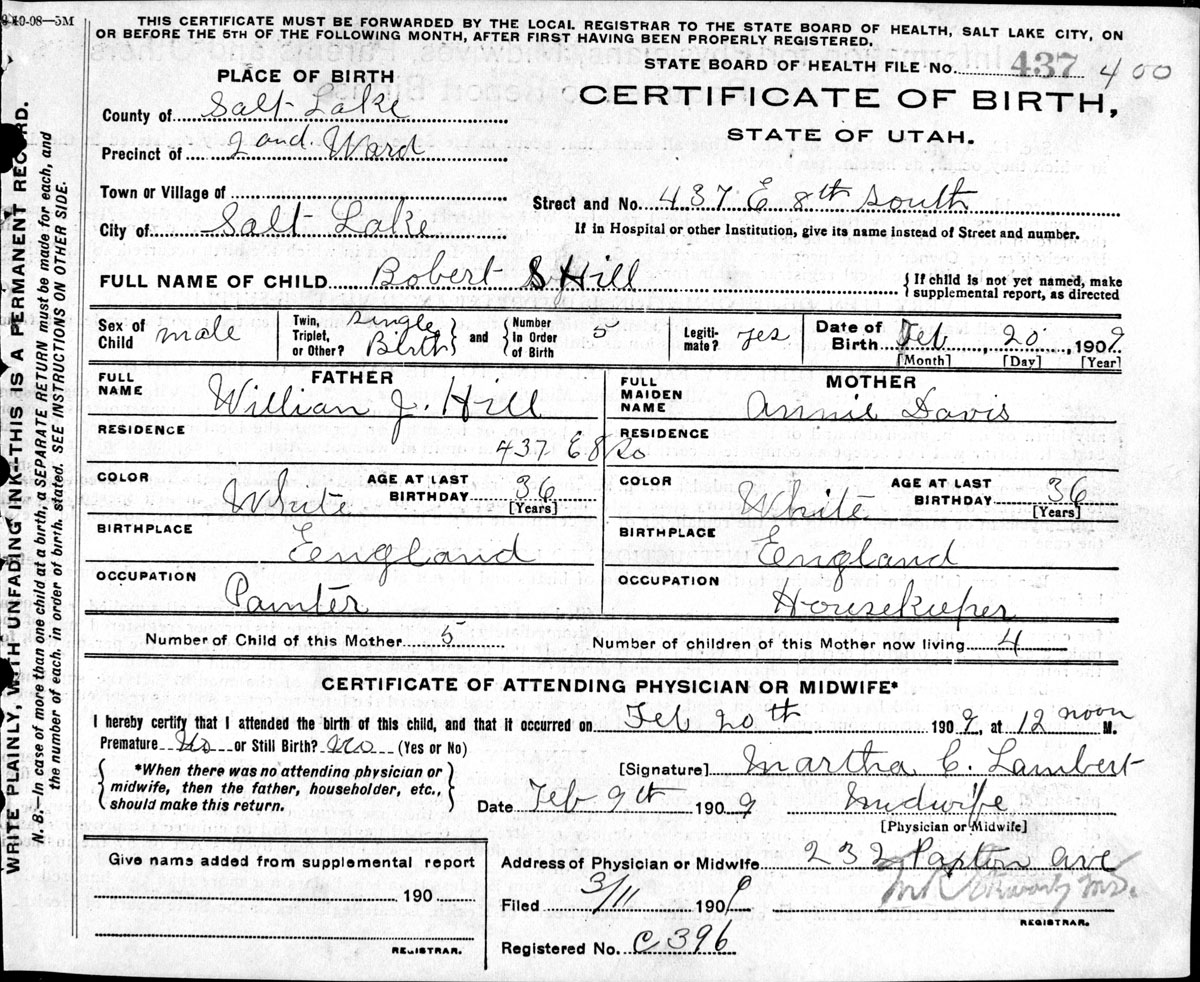 8-10-08—5M
THIS CERTIFICATE MUST BE FORWARDED BY THE LOCAL REGISTRAR TO THE STATE BOARD OF HEALTH, SALT LAKE CITY, ON
OR BEFORE THE 5TH OF THE FOLLOWING MONTH, AFTER FIRST HAVING BEEN PROPERLY REGISTERED.
STATE BOARD OF HEALTH FILE No. 437 400
CERTIFICATE OF BIRTH,
STATE OF UTAH.
PLACE OF BIRTH
County of Salt Lake
Precinct of 2nd Ward
Town or Village of
City of Salt Lake
Street and No. 437 E 8th South
If in Hospital or other Institution, give its name instead of Street and number.
FULL NAME OF CHILD Robert S Hill
{If child is not yet named, make supplemental report, as directed
Sex of Child male
Twin, Triplet, or Other? Single Birth } and { Number In Order of Birth 5
Legitimate? yes
Date of Birth Feb, 20, 1909
[Month] [Day] [Year]
FATHER
FULL NAME Willian J. Hill
RESIDENCE 437 E 8 So
COLOR White AGE AT LAST BIRTHDAY 36 [Years]
BIRTHPLACE Eengland
OCCUPATION Painter
MOTHER
FULL MAIDEN NAME Annie Davis
RESIDENCE
COLOR White AGE AT LAST BIRTHDAY 36 [Years]
BIRTHPLACE Eengland
OCCUPATION Housekieper
Number of Child of this Mother 5 Number of children of this Mother now living 4
CERTIFICATE OF ATTENDING PHYSICIAN OR MIDWIFE*
I hereby certify that I attended the birth of this child, and that it occurred on Feb 20th 1909, at 12 noon M.
Premature No or Still Birth? No (Yes or No)
{ *When there was no attending physician or midwife, then the father, householder, etc., should make this return. }
[Signature] Martha C. Lambert
Date Feb 9th 1909 Midwife
[Physician or Midwife]
Give name added from supplemental report
190
REGISTRAR.
Address of Physician or Midwife 232 Paxton Ave
Filed 3/11 1909
REGISTRAR.
Registered No. C 396
WRITE PLAINLY, WITH UNFADING INK—THIS IS A PERMANENT RECORD.
N. B.—In case of more than one child at a birth, a SEPARATE RETURN must be made for each, and
the number of each, in order of birth, stated. SEE INSTRUCTIONS ON OTHER SIDE.